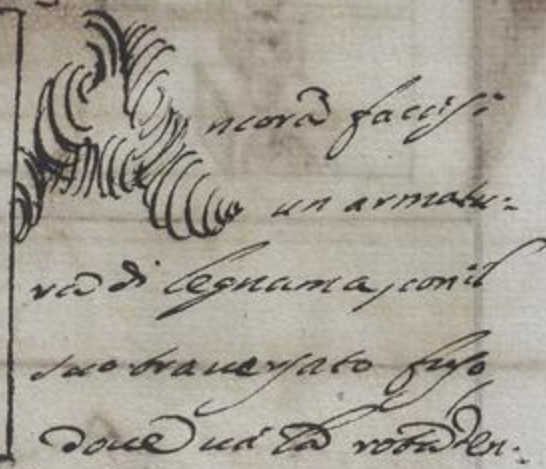 Ancora faccisi
un armatu-
ra di legnama, con il
suo traversato fuso
doue uà la roba den-